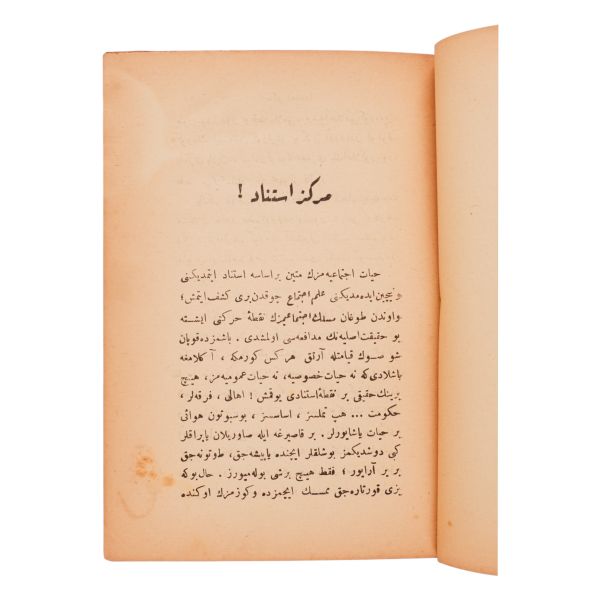 مركز استناد !
حيات اجتماعيه مزك متين بر اساسه استناد ايتمديكنى
و نيچين ايده مديكنى علم اجتماع چوقدن برى كشف ايتمش ؛
واوندن طوغان مسلك اجتماعيمزك نقطهٔ حركتى ايشته
بو حقيقت اصليه نك مدافعه سى اولمشدى . باشمزده قوپان
شو صوك قيامتله آرتق هركس كورمكه ، آكلامغه
باشلادى كه نه حيات خصوصيه ، نه حيات عموميه مز ، هيچ
برينك حقيقى بر نقطهٔ استنادى يوقمش ! اهالى ، فرقه لر ،
حكومت ... هپ تملسز ، اساسسز ، بوسبوتون هوائى
بر حيات ياشايورلر . بر قاصيرغه ايله صاوريلان ياپراقلر
كبى دوشديكمز بوشلقلر ايچنده ياپيشه جق ، طوتونه جق
بر ير آرايور ؛ فقط هيچ برشى بوله ميورز . حال بوكه
بزى قورتاره جق تمسك ايچمزده و كوزمزك اوكنده